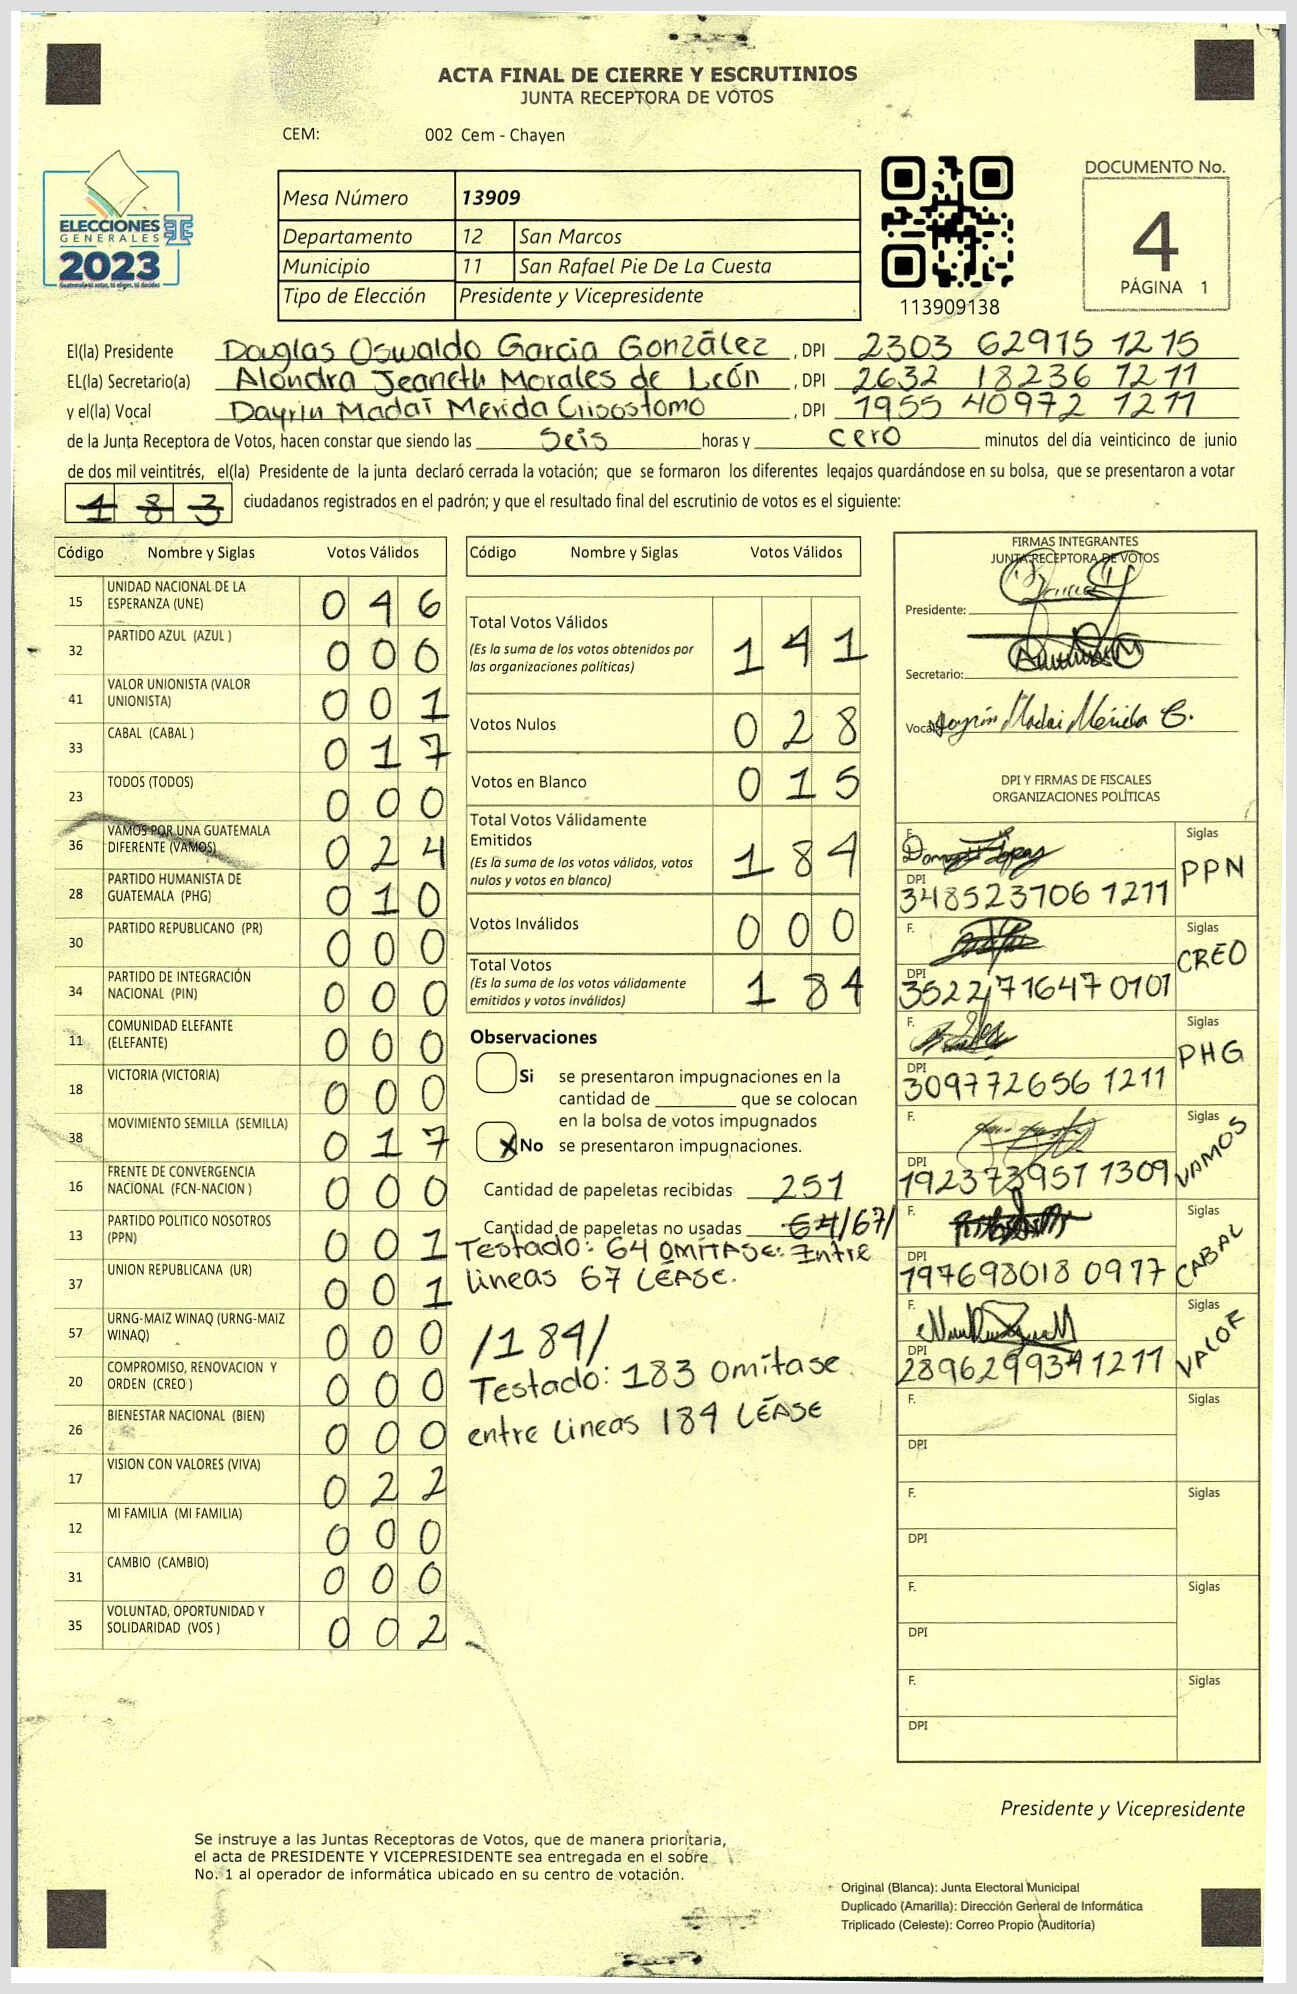 ACTA FINAL DE CIERRE Y ESCRUTINIOS
JUNTA RECEPTORA DE VOTOS
CEM: 002 Cem - Chayen
ELECCIONES
GENERALES
2023
Guatemala tú votas, tú eliges, tú decides
Mesa Número 13909
Departamento 12 San Marcos
Municipio 11 San Rafael Pie De La Cuesta
Tipo de Elección Presidente y Vicepresidente
113909138
DOCUMENTO No.
4
PÁGINA 1
El(la) Presidente Douglas Oswaldo Garcia González , DPI 2303 62915 1215
EL(la) Secretario(a) Alondra Jeaneth Morales de León , DPI 2632 18236 1211
y el(la) Vocal Dayrin Madaí Merida Crisostomo , DPI 1955 40972 1211
de la Junta Receptora de Votos, hacen constar que siendo las seis horas y cero minutos del día veinticinco de junio
de dos mil veintitrés, el(la) Presidente de la junta declaró cerrada la votación; que se formaron los diferentes legajos quardándose en su bolsa, que se presentaron a votar
183 ciudadanos registrados en el padrón; y que el resultado final del escrutinio de votos es el siguiente:
Código Nombre y Siglas Votos Válidos
15 UNIDAD NACIONAL DE LA ESPERANZA (UNE) 046
32 PARTIDO AZUL (AZUL ) 000
41 VALOR UNIONISTA (VALOR UNIONISTA) 001
33 CABAL (CABAL ) 017
23 TODOS (TODOS) 000
36 VAMOS POR UNA GUATEMALA DIFERENTE (VAMOS) 024
28 PARTIDO HUMANISTA DE GUATEMALA (PHG) 010
30 PARTIDO REPUBLICANO (PR) 000
34 PARTIDO DE INTEGRACIÓN NACIONAL (PIN) 000
11 COMUNIDAD ELEFANTE (ELEFANTE) 000
18 VICTORIA (VICTORIA) 000
38 MOVIMIENTO SEMILLA (SEMILLA) 017
16 FRENTE DE CONVERGENCIA NACIONAL (FCN-NACION ) 000
13 PARTIDO POLITICO NOSOTROS (PPN) 001
37 UNION REPUBLICANA (UR) 001
57 URNG-MAIZ WINAQ (URNG-MAIZ WINAQ) 000
20 COMPROMISO, RENOVACION Y ORDEN (CREO ) 000
26 BIENESTAR NACIONAL (BIEN) 000
17 VISION CON VALORES (VIVA) 022
12 MI FAMILIA (MI FAMILIA) 000
31 CAMBIO (CAMBIO) 000
35 VOLUNTAD, OPORTUNIDAD Y SOLIDARIDAD (VOS ) 002
Código Nombre y Siglas Votos Válidos
Total Votos Válidos 141
(Es la suma de los votos obtenidos por
las organizaciones políticas)
Votos Nulos 028
Votos en Blanco 015
Total Votos Válidamente
Emitidos 184
(Es la suma de los votos válidos, votos
nulos y votos en blanco)
Votos Inválidos 000
Total Votos 184
(Es la suma de los votos válidamente
emitidos y votos inválidos)
Observaciones
Si se presentaron impugnaciones en la
cantidad de ________ que se colocan
en la bolsa de votos impugnados
X No se presentaron impugnaciones.
Cantidad de papeletas recibidas 251
Cantidad de papeletas no usadas 64/67/
Testado: 64 OMÍTASE: Entre
lineas 67 LÉASE.
/184/
Testado: 183 Omítase
entre lineas 184 LÉASE
FIRMAS INTEGRANTES
JUNTA RECEPTORA DE VOTOS
Presidente:
Secretario:
Vocal Dayrin Madai Mérida C.
DPI Y FIRMAS DE FISCALES
ORGANIZACIONES POLÍTICAS
F. Siglas PPN
DPI 348523706 1211
F. Siglas CREO
DPI 352271647 0101
F. Siglas PHG
DPI 309772656 1211
F. Siglas VAMOS
DPI 192373951 1309
F. Siglas CABAL
DPI 197698018 0917
F. Siglas VALOR
DPI 289629934 1211
F. Siglas
DPI
F. Siglas
DPI
F. Siglas
DPI
F. Siglas
DPI
Presidente y Vicepresidente
Se instruye a las Juntas Receptoras de Votos, que de manera prioritaria,
el acta de PRESIDENTE Y VICEPRESIDENTE sea entregada en el sobre
No. 1 al operador de informática ubicado en su centro de votación.
Original (Blanca): Junta Electoral Municipal
Duplicado (Amarilla): Dirección General de Informática
Triplicado (Celeste): Correo Propio (Auditoría)